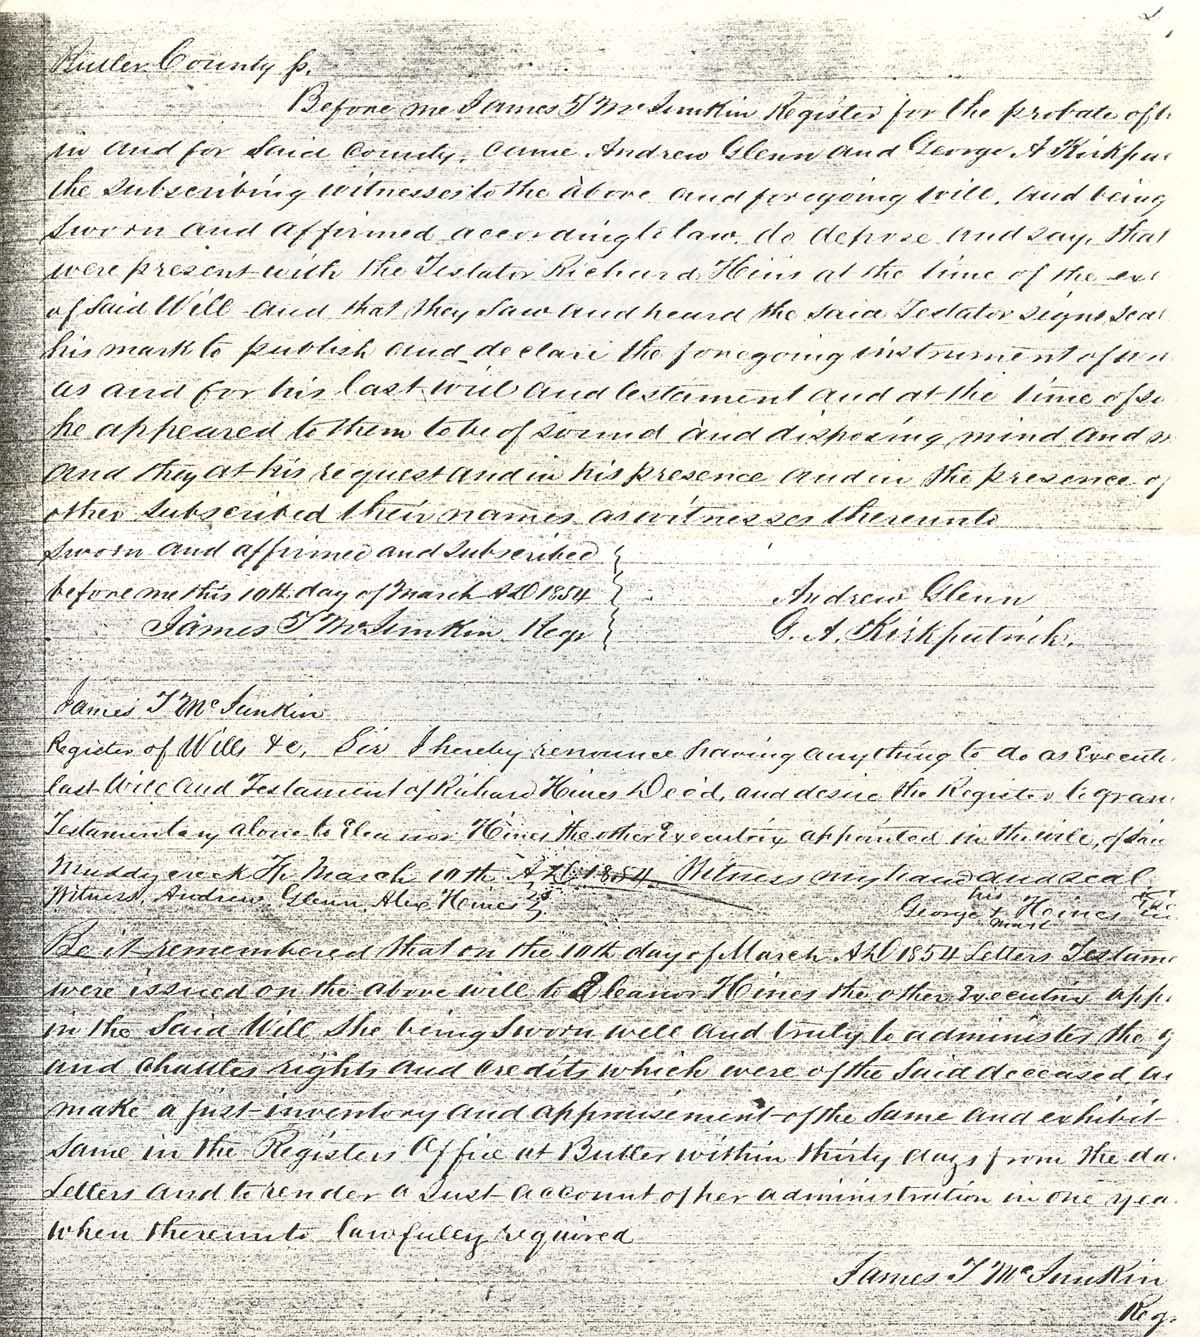 Butler County ss.
Before me James T McJunkin Register for the probate of
in and for said County, came Andrew Glenn and George A Kirkpa
the subscribing witnesses to the above and foregoing will, and being
sworn and affirmed according to law, do depose and say, that
were present with the Testator Richard Hins at the time of the exe
of said Will and that they saw and heard the said Testator sign, seal
his mark to publish and declare the foregoing instrument of
as and for his last will and testament and at the time of so
he appeared to them to be of sound and disposing mind and
and they at his request and in his presence and in the presence of
other subscribed their names as witnesses thereunto
Sworn and affirmed and subscribed
before me this 10th day of March AD 1854
James T McJunkin Regr
Andrew Glenn
G. A. Kirkpatrick.
James T McJunkin
Register of Wills &c, Sir I hereby renounce having anything to do as Execut
last Will and Testament of Richard Hines Decd, and desire the Register to gran
Testamentary alone to Eleanor Hines the other Executrix appointed in the will, of
Muddycreek Tp March 10th AD 1854 Witness my hand and seal
Witness, Andrew Glenn Alex Hines
his
George x Hines
mark
Be it remembered that on the 10th day of March AD 1854 Letters Testame
were issued on the above will to Eleanor Hines the other Executrix app
in the said Will She being Sworn well and truly to administer the g
and chattles rights and credits which were of the said deceased,
make a just inventory and appraisement of the same and exhibit
same in the Registers Office at Butler within thirty days from the da
Letters and to render a Just account of her administration in one yea
when thereunto lawfully required
James T McJunkin
Regr